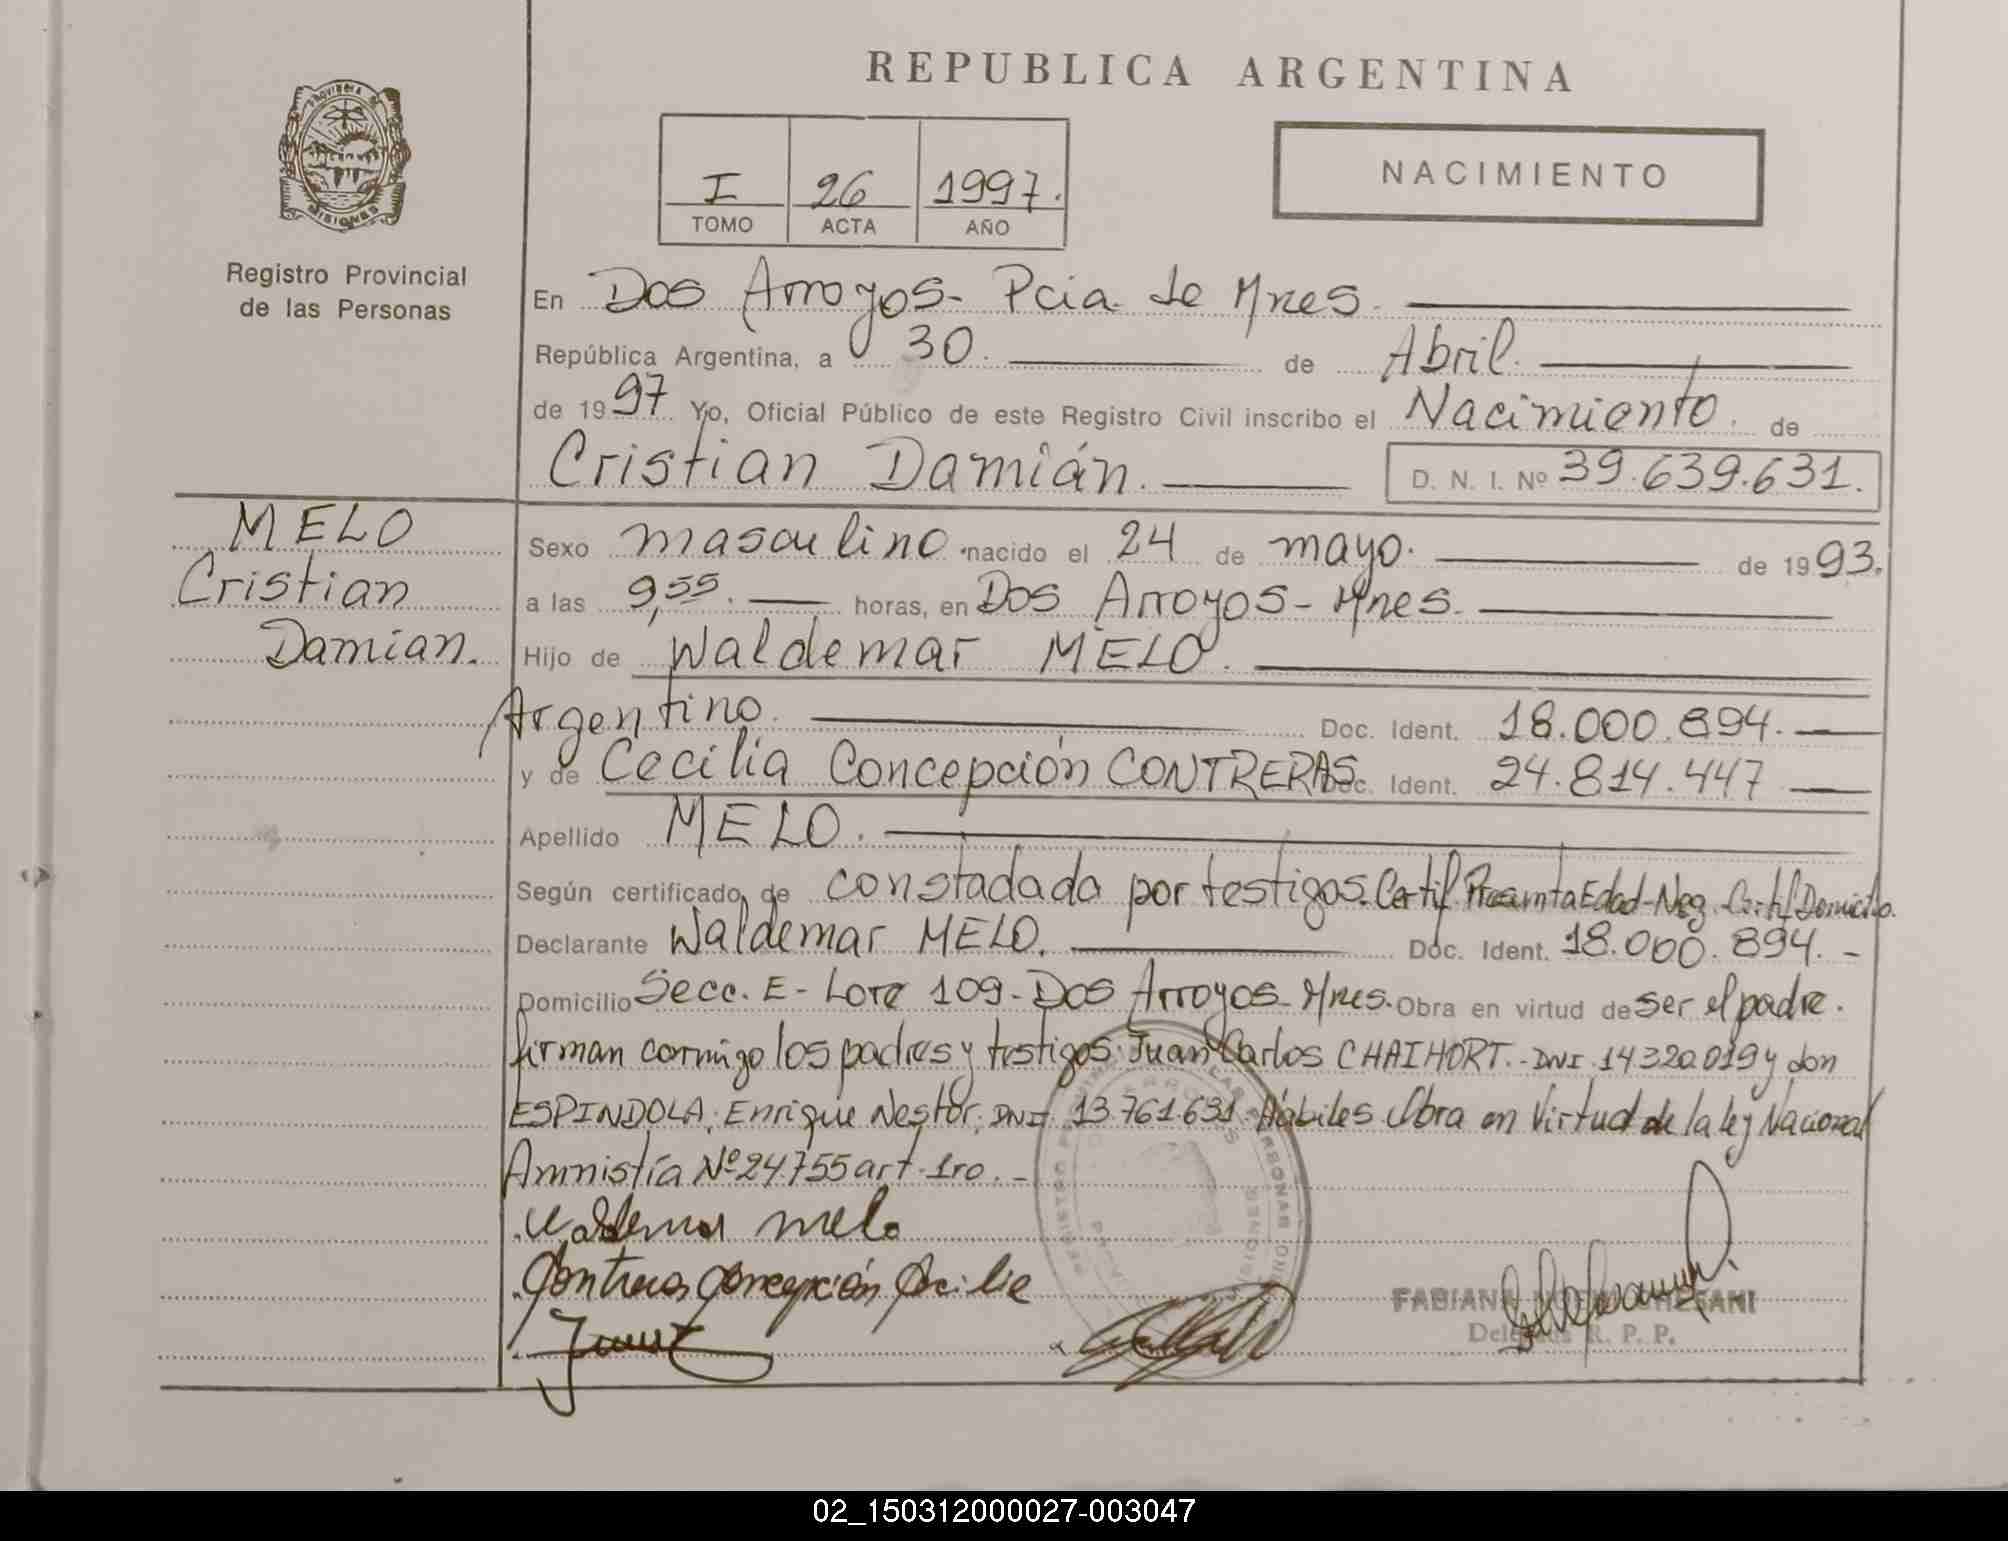 REPUBLICA ARGENTINA
PROVINCIA DE
MISIONES
Registro Provincial
de las Personas
I 26 1997.
TOMO ACTA AÑO
NACIMIENTO
En Dos Arroyos- Pcia. de Mnes.
República Argentina, a 30. de Abril.
de 1997 Yo, Oficial Público de este Registro Civil inscribo el Nacimiento. de
Cristian Damián. D. N. I. Nº 39.639.631.
MELO
Cristian
Damian.
Sexo masculino nacido el 24 de mayo. de 1993.
a las 9,55. horas, en Dos Arroyos- Mnes.
Hijo de Waldemar MELO.
Argentino. Doc. Ident. 18.000.894.
y de Cecilia Concepción CONTRERAS Doc. Ident. 24.814.447
Apellido MELO.
Según certificado de constadado por testigos. Certif Presunta Edad-Neg. Certif Domicilio.
Declarante Waldemar MELO. Doc. Ident. 18.000.894.-
Domicilio Secc. E- Lote 109- Dos Arroyos- Mnes. Obra en virtud de ser el padre.
firman conmigo los padres y testigos: Juan Carlos CHAIHORT.- DNI. 14.320.019 y don
ESPINDOLA, Enrique Nestor, DNI 13.761.631. Hábiles. Obra en Virtud de la ley Nacional
Amnistía Nº 24.755 art. 1ro.-
Waldemar melo
Contreras Concepción Cecilia
FABIANA
Delegada R. P. P.
02_150312000027-003047